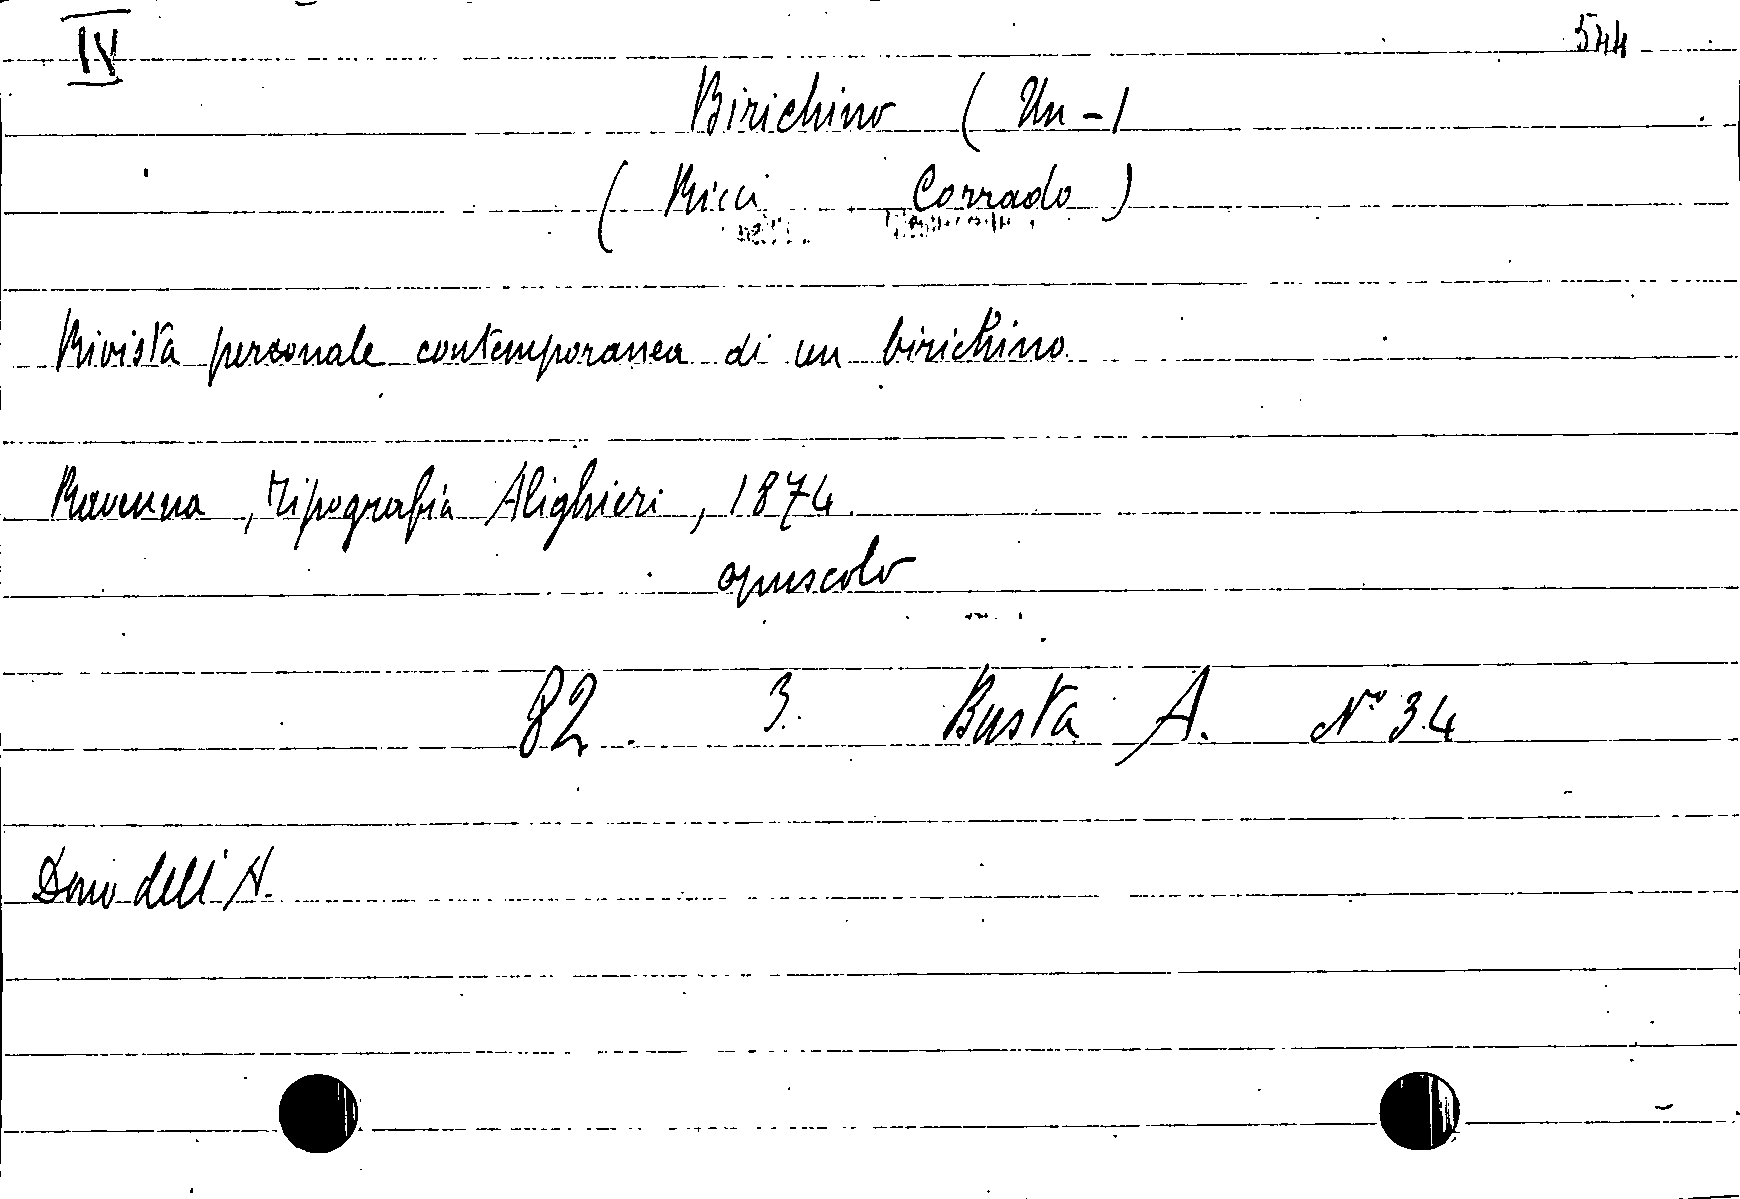 IV 544
Birichino ( Un - )
( Ricci Corrado )
Rivista personale contemporanea di un birichino
Ravenna, Tipografia Alighieri, 1874.
opuscolo
82. 3. Busta A. Nº 34
Dono dell'A.